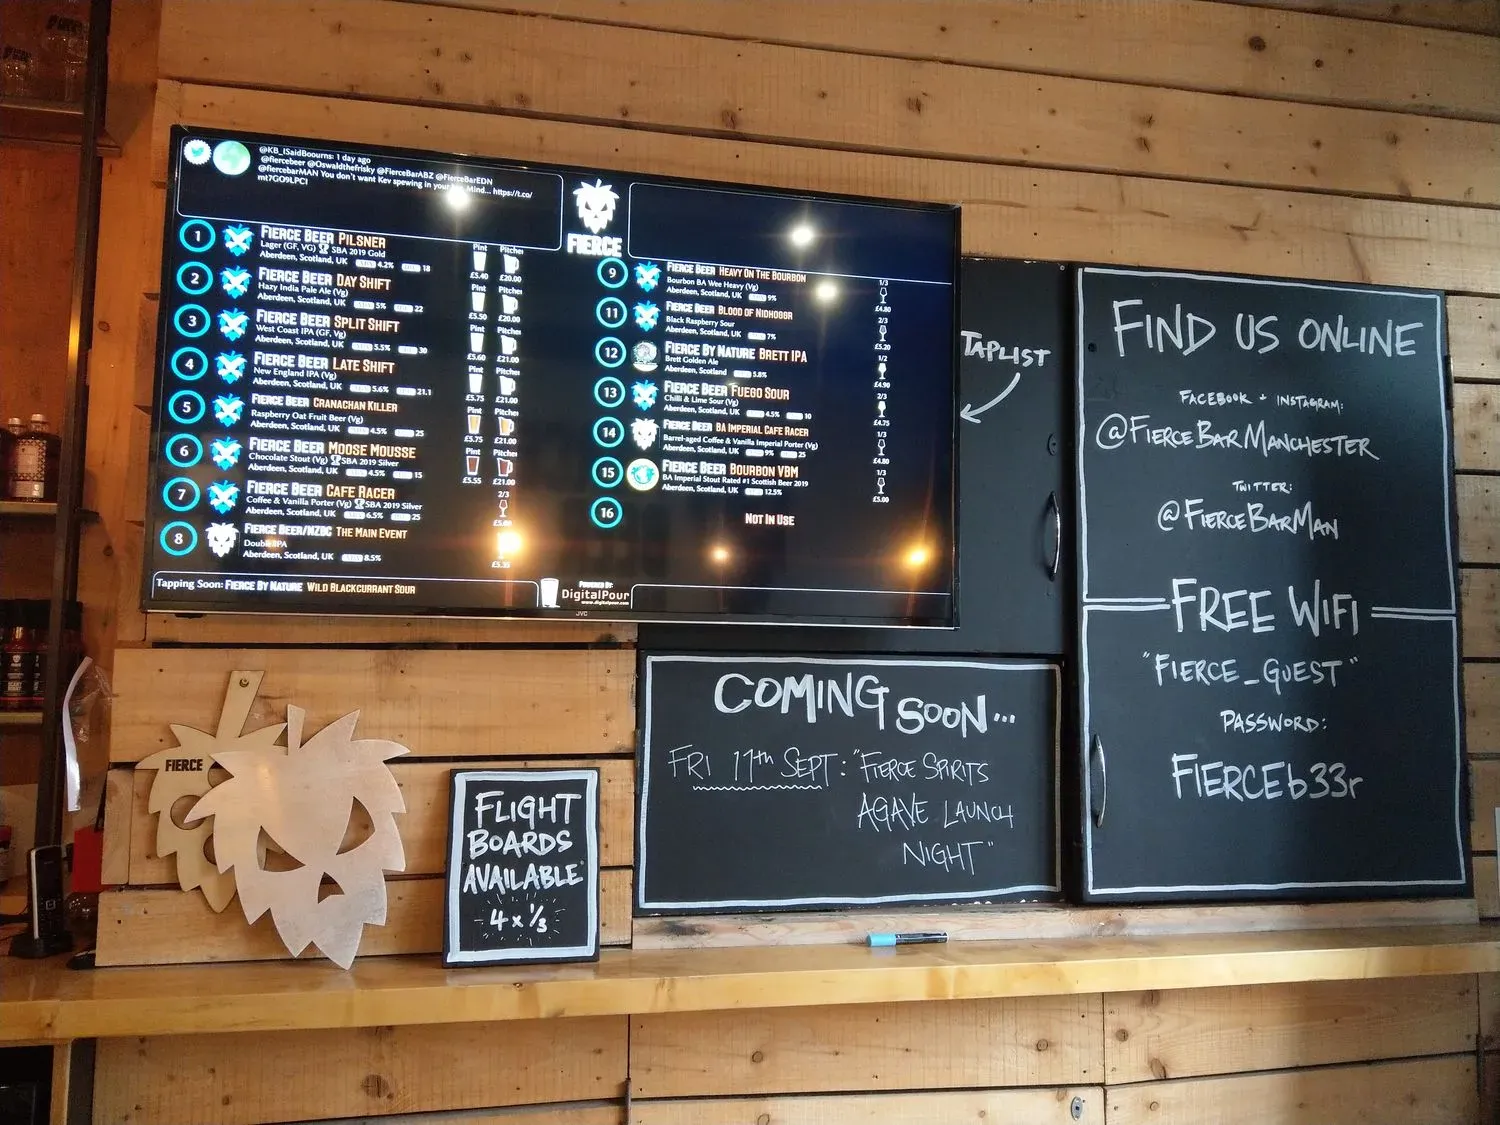 @KB_ISaidBoourns: 1 day ago
@fiercebeer @Oswaldthefrisky @FierceBarABZ @FierceBarEDN
@fiercebarMAN You don't want Kev spewing in your Mind... https://t.co/
mt7GO9LPCI
FIERCE
Pint Pitcher
1 FIERCE BEER PILSNER
Lager (GF, VG) SBA 2019 Gold
Aberdeen, Scotland, UK 4.2% 18
£5.40 £20.00
2 FIERCE BEER DAY SHIFT
Hazy India Pale Ale (Vg)
Aberdeen, Scotland, UK 5% 22
Pint Pitcher
£5.50 £20.00
3 FIERCE BEER SPLIT SHIFT
West Coast IPA (GF, Vg)
Aberdeen, Scotland, UK 5.5% 30
Pint Pitcher
£5.60 £21.00
4 FIERCE BEER LATE SHIFT
New England IPA (Vg)
Aberdeen, Scotland, UK 5.6% 21.1
Pint Pitcher
£5.75 £21.00
5 FIERCE BEER CRANACHAN KILLER
Raspberry Oat Fruit Beer (Vg)
Aberdeen, Scotland, UK 4.5% 25
Pint Pitcher
£5.75 £21.00
6 FIERCE BEER MOOSE MOUSSE
Chocolate Stout (Vg) SBA 2019 Silver
Aberdeen, Scotland, UK 4.5% 15
Pint Pitcher
£5.55 £21.00
7 FIERCE BEER CAFE RACER
Coffee & Vanilla Porter (Vg) SBA 2019 Silver
Aberdeen, Scotland, UK 6.5% 25
2/3
8 FIERCE BEER/NZBC THE MAIN EVENT
Double IPA
Aberdeen, Scotland, UK 8.5%
9 FIERCE BEER HEAVY ON THE BOURBON
Bourbon BA Wee Heavy (Vg)
Aberdeen, Scotland, UK 9%
1/3
£4.80
11 FIERCE BEER BLOOD OF NIDHOGGR
Black Raspberry Sour
Aberdeen, Scotland, UK 7%
2/3
£5.20
12 FIERCE BY NATURE BRETT IPA
Brett Golden Ale
Aberdeen, Scotland 5.8%
1/2
£4.90
13 FIERCE BEER FUEGO SOUR
Chilli & Lime Sour (Vg)
Aberdeen, Scotland, UK 4.5% 10
2/3
£4.75
14 FIERCE BEER BA IMPERIAL CAFE RACER
Barrel-aged Coffee & Vanilla Imperial Porter (Vg)
Aberdeen, Scotland, UK 9% 25
1/3
£4.80
15 FIERCE BEER BOURBON VBM
BA Imperial Stout Rated #1 Scottish Beer 2019
Aberdeen, Scotland, UK 12.5%
1/3
£5.00
16 NOT IN USE
Tapping Soon: FIERCE BY NATURE WILD BLACKCURRANT SOUR
POWERED BY:
DigitalPour
www.digitalpour.com
JVC
TAPLIST
FIND US ONLINE
FACEBOOK + INSTAGRAM:
@FIERCEBARMANCHESTER
TWITTER:
@FIERCEBARMAN
FREE WIFI
"FIERCE_GUEST"
PASSWORD:
FIERCEb33r
COMING SOON...
FRI 11th SEPT: "FIERCE SPIRITS
AGAVE LAUNCH
NIGHT"
FIERCE
FLIGHT
BOARDS
AVAILABLE
4 x 1/3